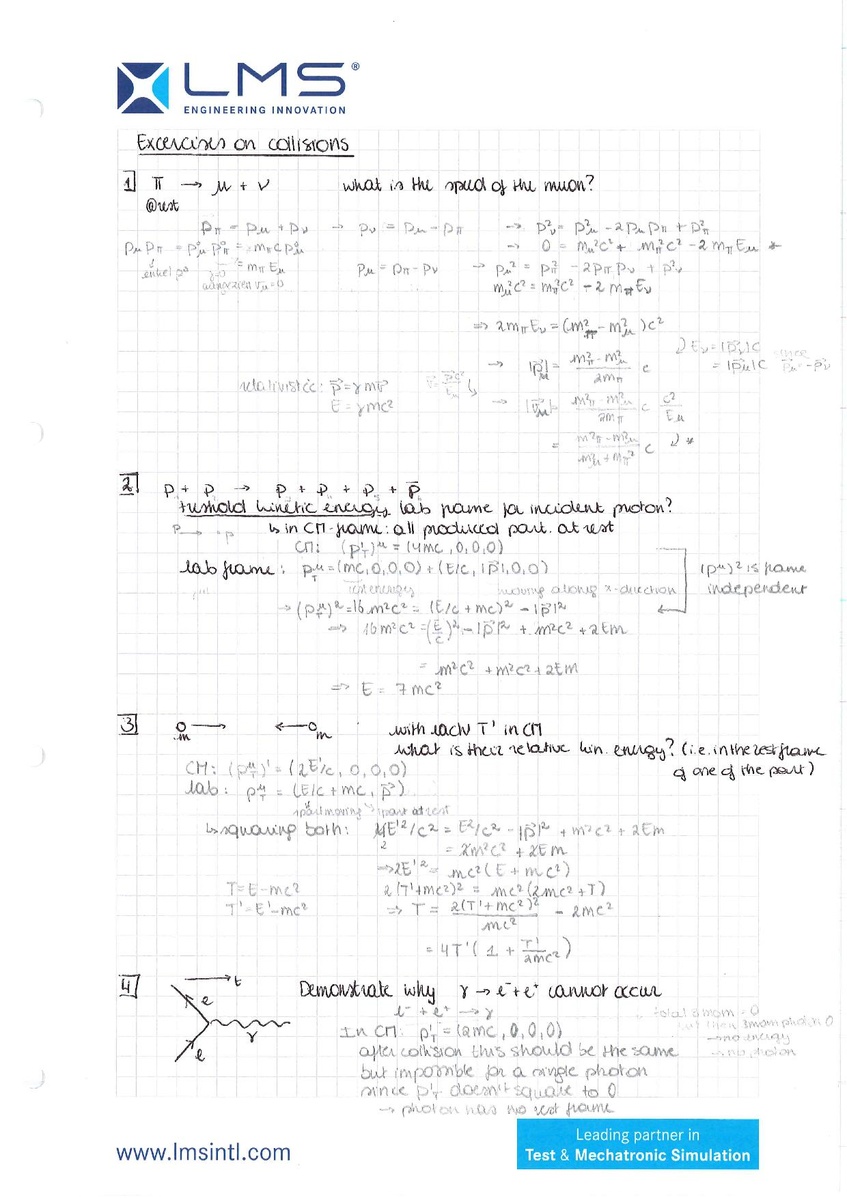 LMS®
ENGINEERING INNOVATION
Excercises on collisions
1 π → μ + ν what is the speed of the muon?
@rest
p_π = p_μ + p_ν → p_ν = p_μ - p_π → p²_ν = p²_μ - 2p_μ p_π + p²_π
p_μ p_π = p⁰_μ p⁰_π = m_π c p⁰_μ → 0 = m_μ²c² + m_π²c² - 2 m_π E_μ *
enkel = m_π E_μ p_μ = p_π - p_ν → p_μ² = p_π² - 2p_π p_ν + p²_ν
aangezien v_π = 0 m_μ²c² = m_π²c² - 2 m_π E_ν
⇒ 2m_π E_ν = (m²_π - m²_μ)c²
→ |p⃗_μ| = (m²_π - m²_μ)/2m_π c E_ν = |p⃗_ν|c since
= |p⃗_μ|c p⃗_μ = -p⃗_ν
relativistic: p⃗ = γmv⃗ v⃗ = p⃗c²/E_μ → |v⃗_μ| = (m²_π - m²_μ)/2m_π c c²/E_μ
E = γmc²
= (m²_π - m²_μ)/(m²_μ + m_π²) c *
2 p + p → p + p + p + p̄
treshold kinetic energy lab frame for incident proton?
p → ·p ↳ in CM-frame: all produced part. at rest
CM: (p'_T)^μ = (4mc, 0, 0, 0)
lab frame: p^μ_T = (mc, 0, 0, 0) + (E/c, |p⃗|, 0, 0) (p^μ)² is frame
rest energy moving along x-direction independent
→ (p^μ_T)² = 16 m²c² = (E/c + mc)² - |p⃗|²
⇒ 16 m²c² = (E/c)² - |p⃗|² + m²c² + 2Em
= m²c² + m²c² + 2Em
⇒ E = 7mc²
3 m → ← m with each T' in CM
what is their relative kin. energy? (i.e. in the rest frame
CM: (p^μ_T)' = (2E'/c, 0, 0, 0) of one of the part)
lab: p^μ_T = (E/c + mc, p⃗)
1 part moving 1 part at rest
↳ squaring both: 4E'²/c² = E²/c² - |p⃗|² + m²c² + 2Em
2 = 2m²c² + 2Em
→ 2E'² = mc²(E + mc²)
T = E - mc² 2(T' + mc²)² = mc²(2mc² + T)
T' = E' - mc² ⇒ T = 2(T' + mc²)²/mc² - 2mc²
= 4T'(1 + T'/2mc²)
4 t Demonstrate why γ → e⁻ + e⁺ cannot occur
e e⁻ + e⁺ → γ total 3mom = 0
γ In CM: p'_T = (2mc, 0, 0, 0) but then 3mom photon 0
e after collision this should be the same → no energy
but impossible for a single photon → no photon
since p'_T doesn't square to 0
→ photon has no rest frame
www.lmsintl.com
Leading partner in
Test & Mechatronic Simulation